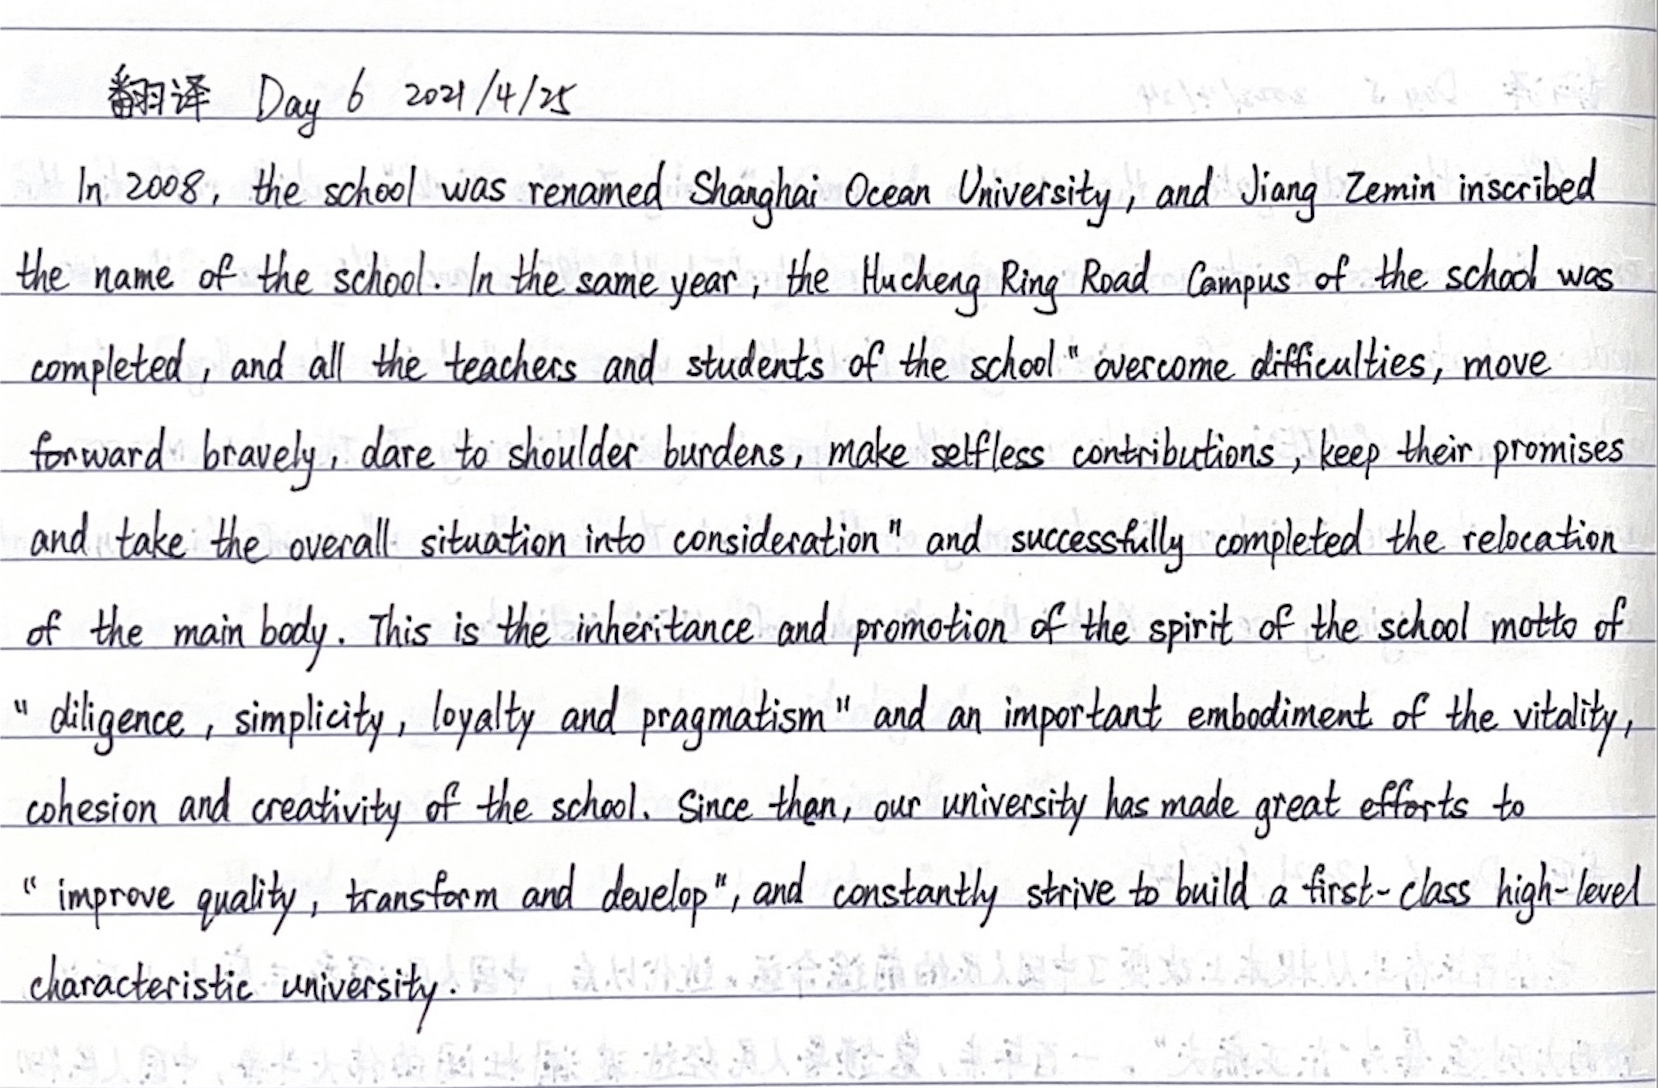 翻译 Day 6 2021/4/25
In 2008, the school was renamed Shanghai Ocean University, and Jiang Zemin inscribed
the name of the school. In the same year, the Hucheng Ring Road Campus of the school was
completed, and all the teachers and students of the school "overcome difficulties, move
forward bravely, dare to shoulder burdens, make selfless contributions, keep their promises
and take the overall situation into consideration" and successfully completed the relocation
of the main body. This is the inheritance and promotion of the spirit of the school motto of
"diligence, simplicity, loyalty and pragmatism" and an important embodiment of the vitality,
cohesion and creativity of the school. Since then, our university has made great efforts to
"improve quality, transform and develop", and constantly strive to build a first-class high-level
characteristic university.